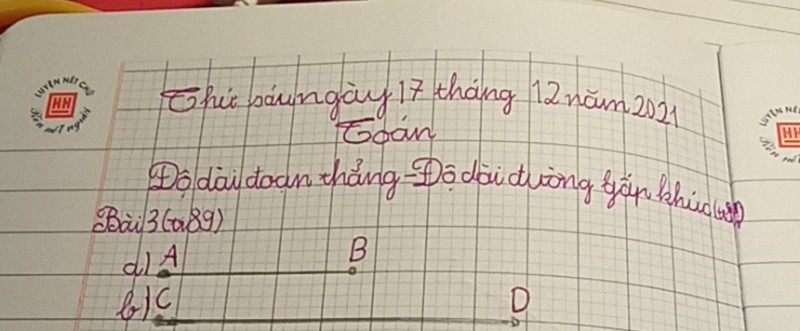 LUYỆN NÉT CHỮ
HH
Rèn nết người
Thứ sáu ngày 17 tháng 12 năm 2021
Toán
Độ dài đoạn thẳng - Độ dài đường gấp khúc
Bài 3 (tr 89)
a) A B
b) C D
LUYỆN NÉ
HH